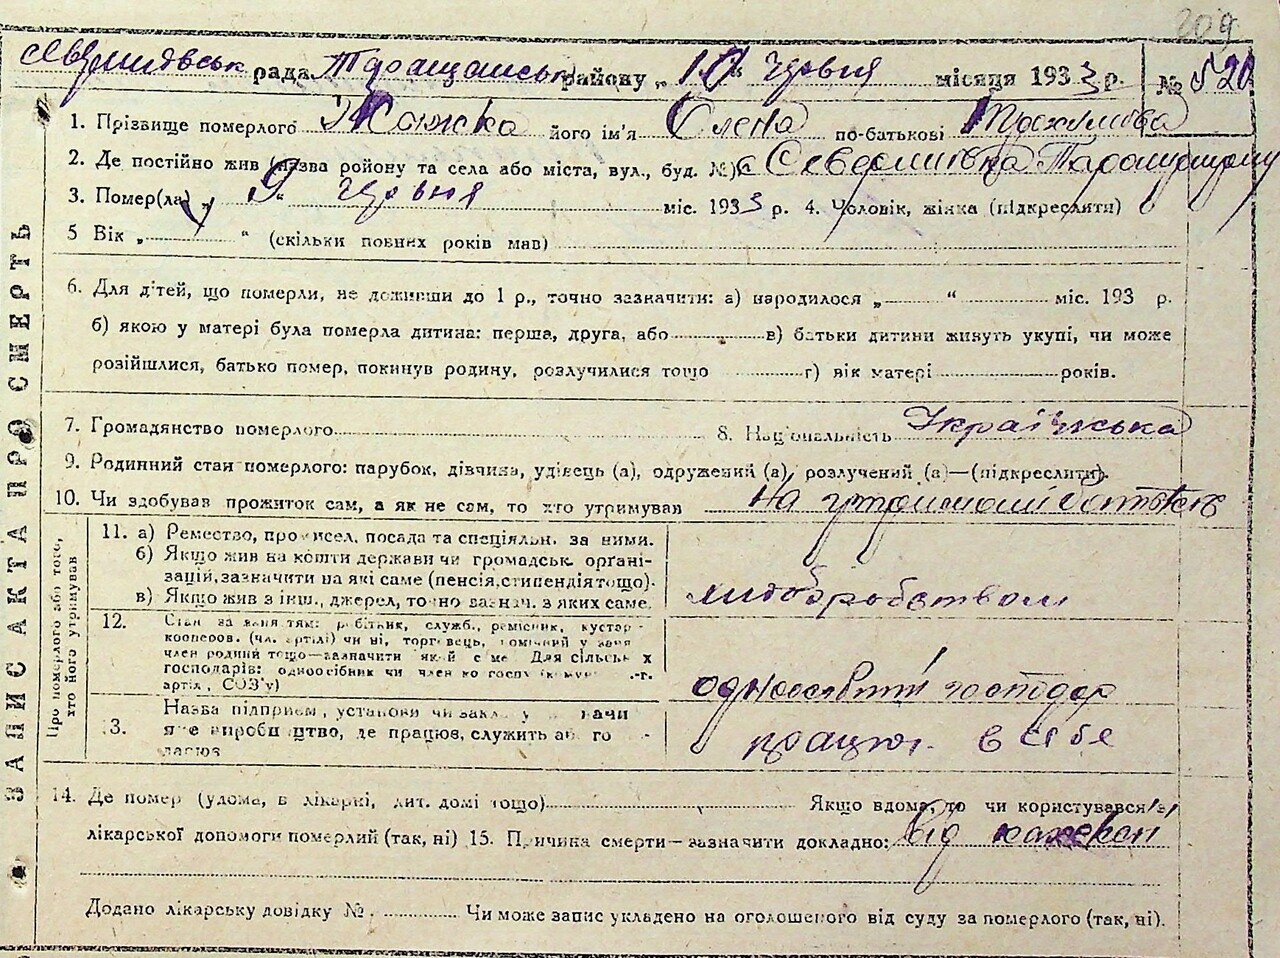 209
рада Таращанськ району „10“ червня місяця 1933 р. № 520
1. Прізвище померлого його ім'я Олена по-батькові
2. Де постійно жив (назва району та села або міста, вул., буд. №) с
3. Помер(ла) „9“ червня міс. 1933 р. 4. Чоловік, жінка (підкреслити)
5 Вік „ “ (скільки повних років мав)
6. Для дітей, що померли, не доживши до 1 р., точно зазначити: а) народилося „ “ міс. 193 р.
б) якою у матері була померла дитина: перша, друга, або в) батьки дитини живуть укупі, чи може
розійшлися, батько помер, покинув родину, розлучилися тощо г) вік матері років.
7. Громадянство померлого 8. Національність Українська
9. Родинний стан померлого: парубок, дівчина, удівець (а), одружений (а), розлучений (а)—(підкреслити).
10. Чи здобував прожиток сам, а як не сам, то хто утримував на утриманні батьків
ЗАПИС АКТА ПРО СМЕРТЬ
Про померлого або того, хто його утримував
11. а) Ремество, промисел, посада та спеціяльн. за ними.
б) Якщо жив на кошти держави чи громадськ. органі-
зацій, зазначити на які саме (пенсія, стипендія тощо).
в) Якщо жив з інш., джерел, точно зазнач. з яких саме.
хлібробством
12. Стан за заняттям: робітник, служб., ремісник, кустар-
кооперов. (чл. артілі) чи ні, торговець,
член родини тощо—зазначити який саме Для сільськ х
господарів: одноосібник чи член
артіл, СОЗ'у)
господар
13. Назва підприєм, установи чи
виробництво, де працює, служить
працює в себе
14. Де помер (удома, в лікарні, дит. домі тощо) Якщо вдома, то чи користувався
лікарської допомоги померлий (так, ні) 15. Причина смерти—зазначити докладно: Від
Додано лікарську довідку №. Чи може запис укладено на оголошеного від суду за померлого (так, ні).